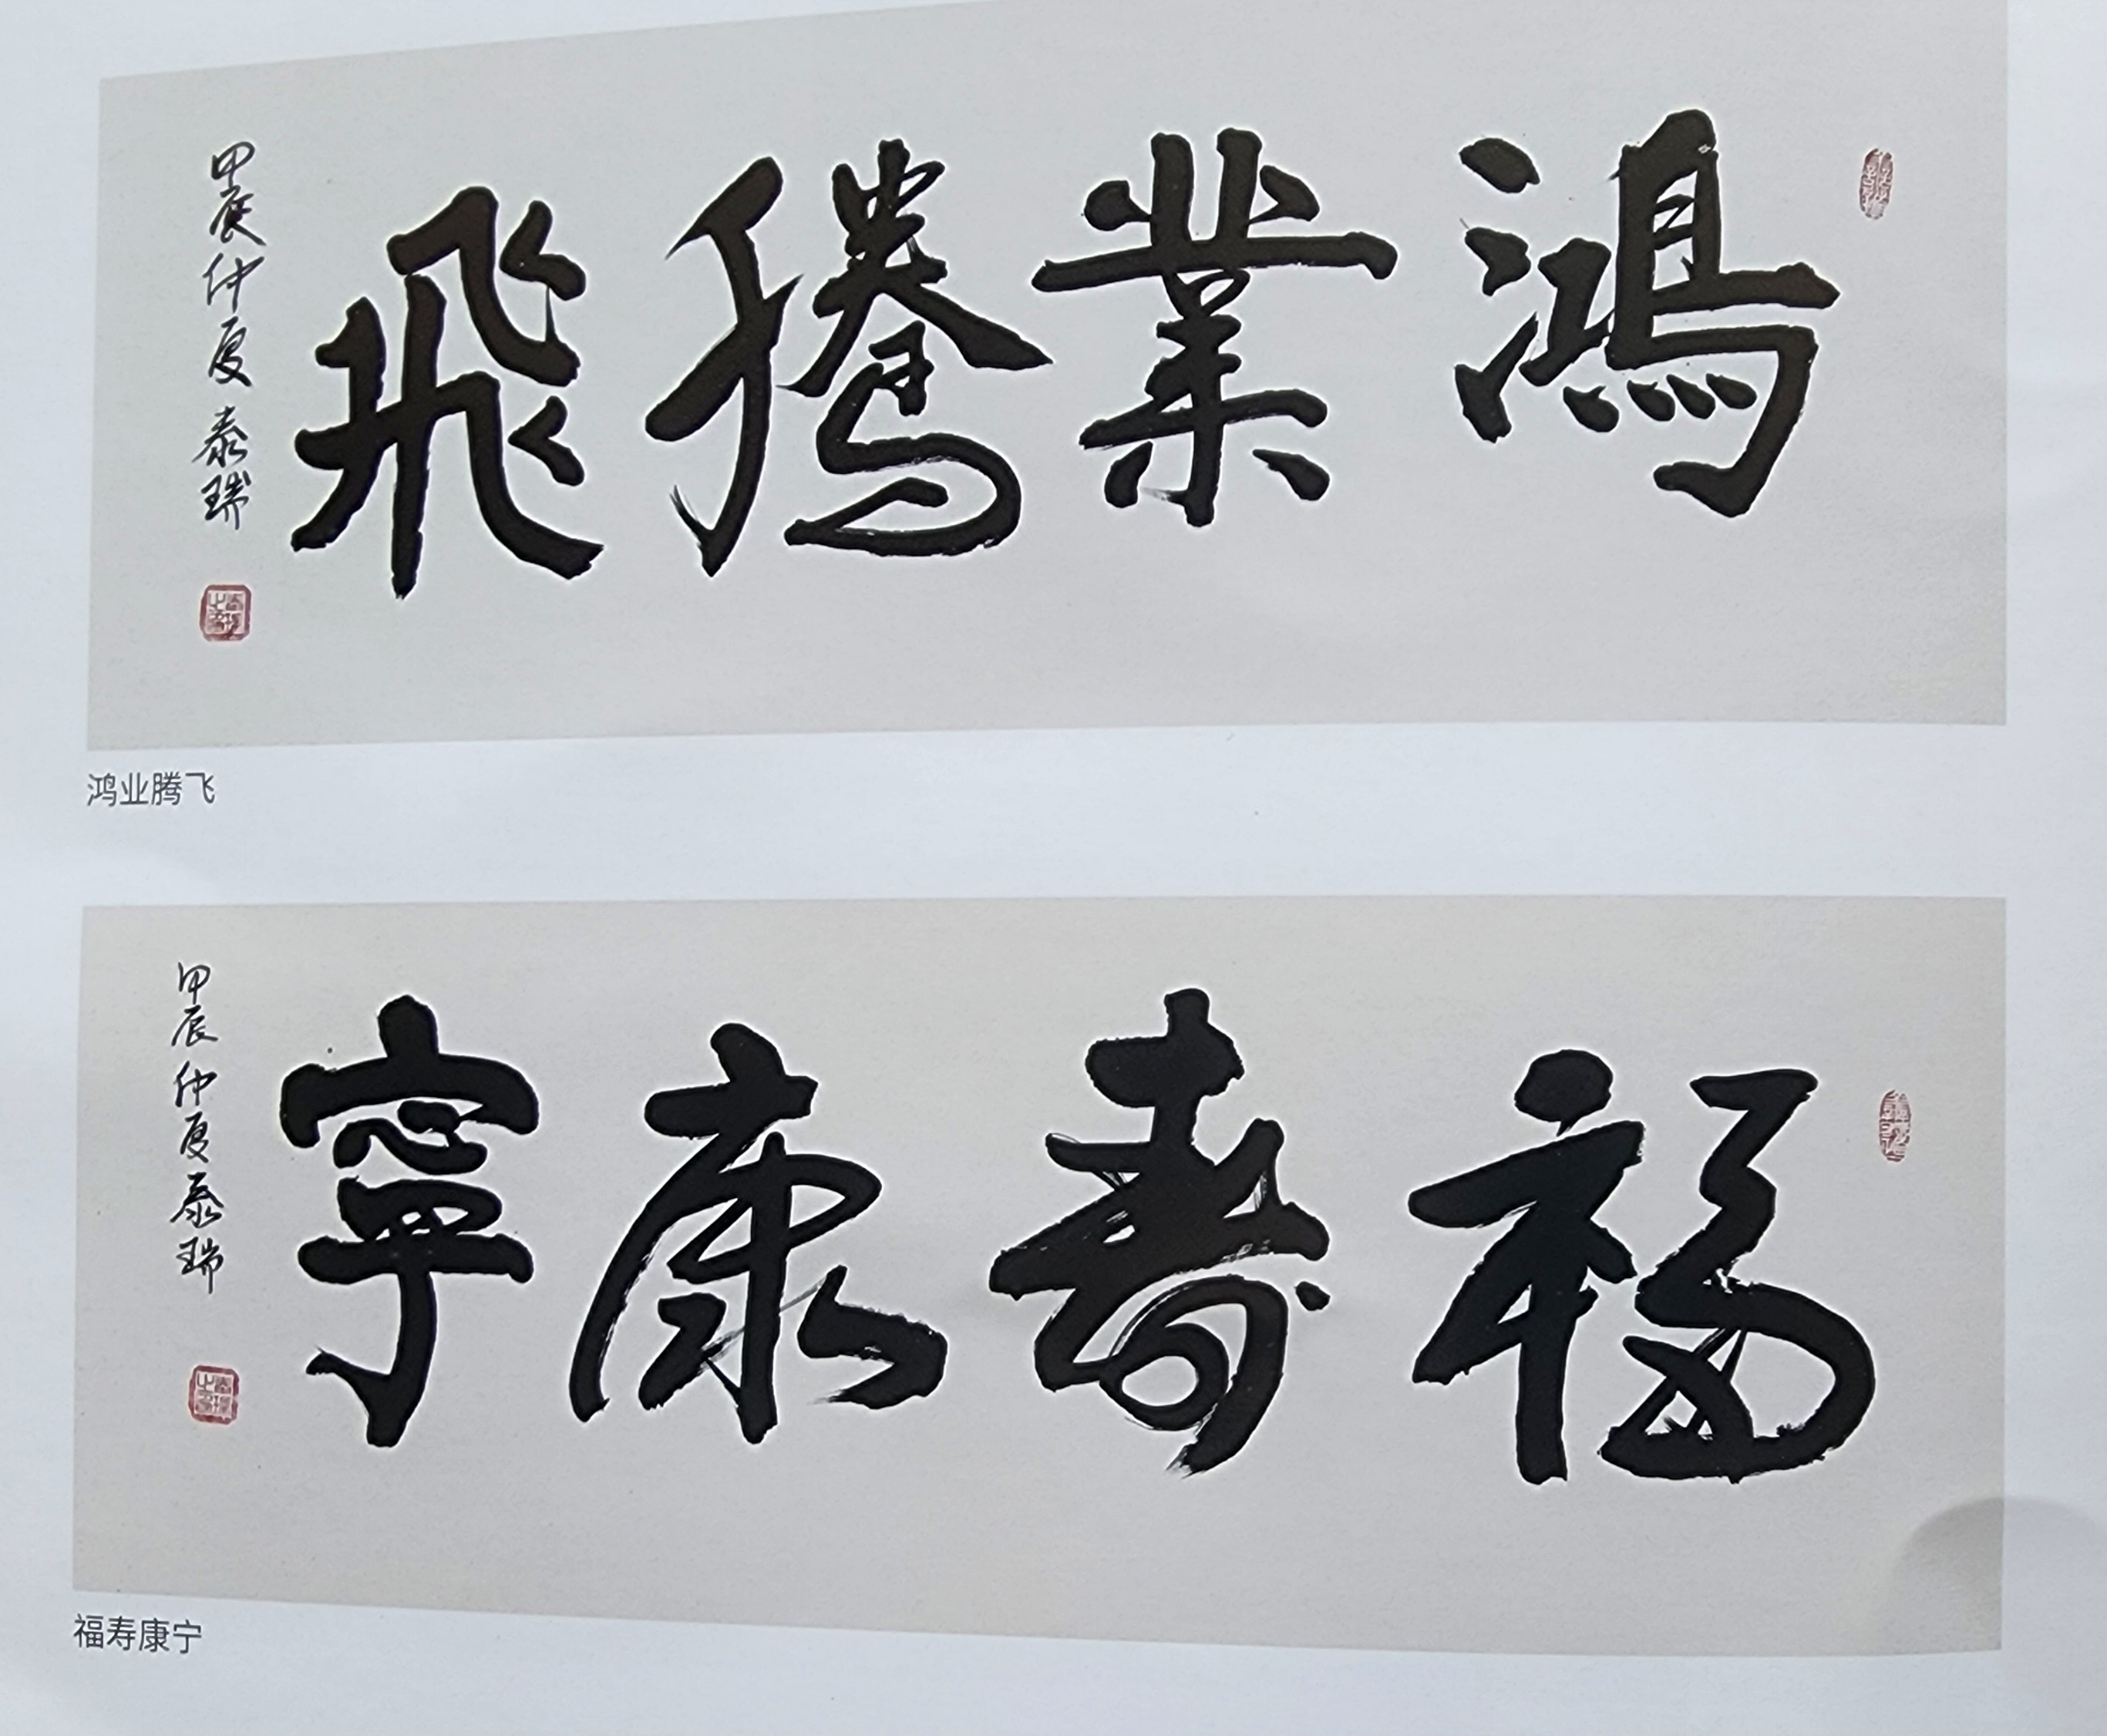 鴻業騰飛
甲辰仲夏泰瑞
鸿业腾飞
福壽康寧
甲辰仲夏泰瑞
福寿康宁